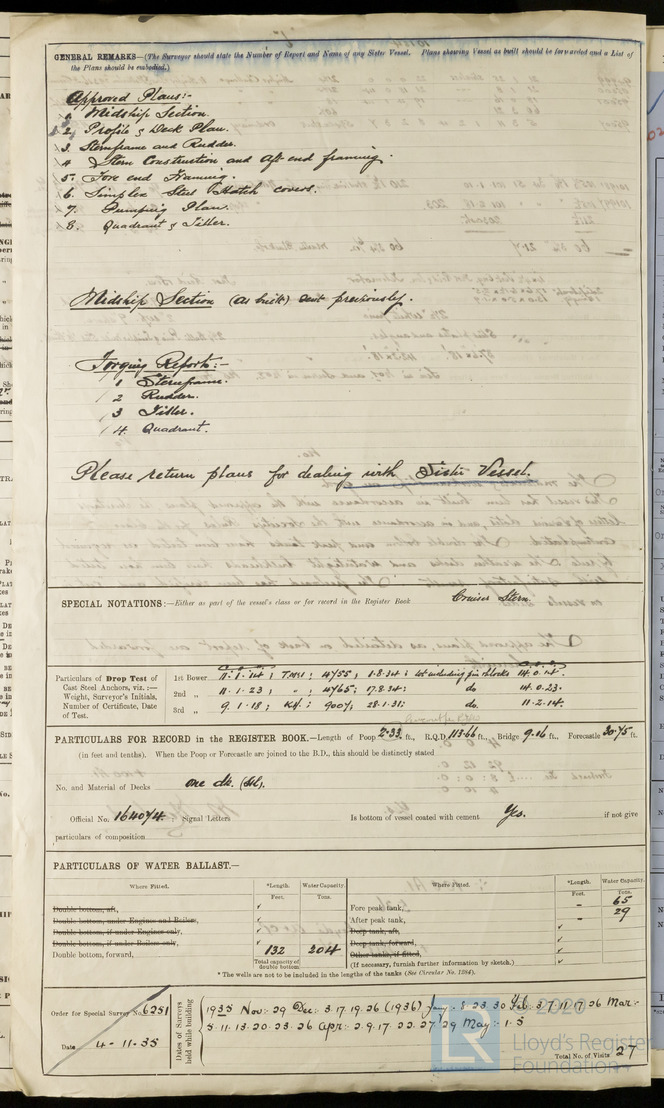 GENERAL REMARKS—(The Surveyor should state the Number of Report and Name of any Sister Vessel. Plans shewing Vessel as built should be forwarded and a List of
the Plans should be embodied.)
Approved Plans:-
1. Midship Section.
2. Profile & Deck Plan.
3. Sternframe and Rudder.
4 Stern Construction and Aft end framing.
5. Fore end Framing.
6. Simplex Steel Hatch covers.
7. Pumping Plan.
8. Quadrant & Tiller.
Midship Section (as built) sent previously.
Forging Reports:-
1 Sternframe.
2 Rudder.
3 Tiller.
4 Quadrant.
Please return plans for dealing with Sister Vessel.
SPECIAL NOTATIONS:—Either as part of the vessel's class or for record in the Register Book Cruiser Stern.
Particulars of Drop Test of
Cast Steel Anchors, viz.:—
Weight, Surveyor's Initials,
Number of Certificate, Date
of Test.
1st Bower 11.1.14; 4755; 1.8.34: not including pin & blocks 14.0.14.
2nd „ 11.1.23; „; 4765; 17.8.34: do 14.0.23.
3rd „ 9.1.18; KH: 28.1.31; do. 11.2.14.
PARTICULARS FOR RECORD in the REGISTER BOOK.—Length of Poop 2.33 ft., R.Q.D. 113.66 ft., Bridge 9.16 ft., Forecastle 20.75 ft.
(in feet and tenths). When the Poop or Forecastle are joined to the B.D., this should be distinctly stated
No. and Material of Decks one dk. (Stl).
Official No. 164074: Signal Letters Is bottom of vessel coated with cement Yes. if not give
particulars of composition
PARTICULARS OF WATER BALLAST.—
Where Fitted. *Length. Water Capacity. Where Fitted. *Length. Water Capacity.
Feet. Tons. Feet. Tons.
Double bottom, aft, Fore peak tank, – 65
Double bottom, under Engines and Boilers, After peak tank, – 29
Double bottom, if under Engines only, Deep tank, aft,
Double bottom, if under Boilers only, Deep tank, forward,
Double bottom, forward, 132 204 Other tanks, if fitted,
Total capacity of
double bottom
(If necessary, furnish further information by sketch.)
* The wells are not to be included in the lengths of the tanks (See Circular No. 1284).
Order for Special Survey No. 6251
Date 4-11-35
Dates of Surveys
held while building
1935 Nov: 29 Dec: 3.17.19.26 (1936) Jany: 8.23.30 Feb. 3.7.11.17.26 Mar:
5.11.13.20.23.26 Apr: 2.9.17.22.27.29 May: 1.5
Total No. of Visits 27
© 2020
LR
Lloyd's Register
Foundation